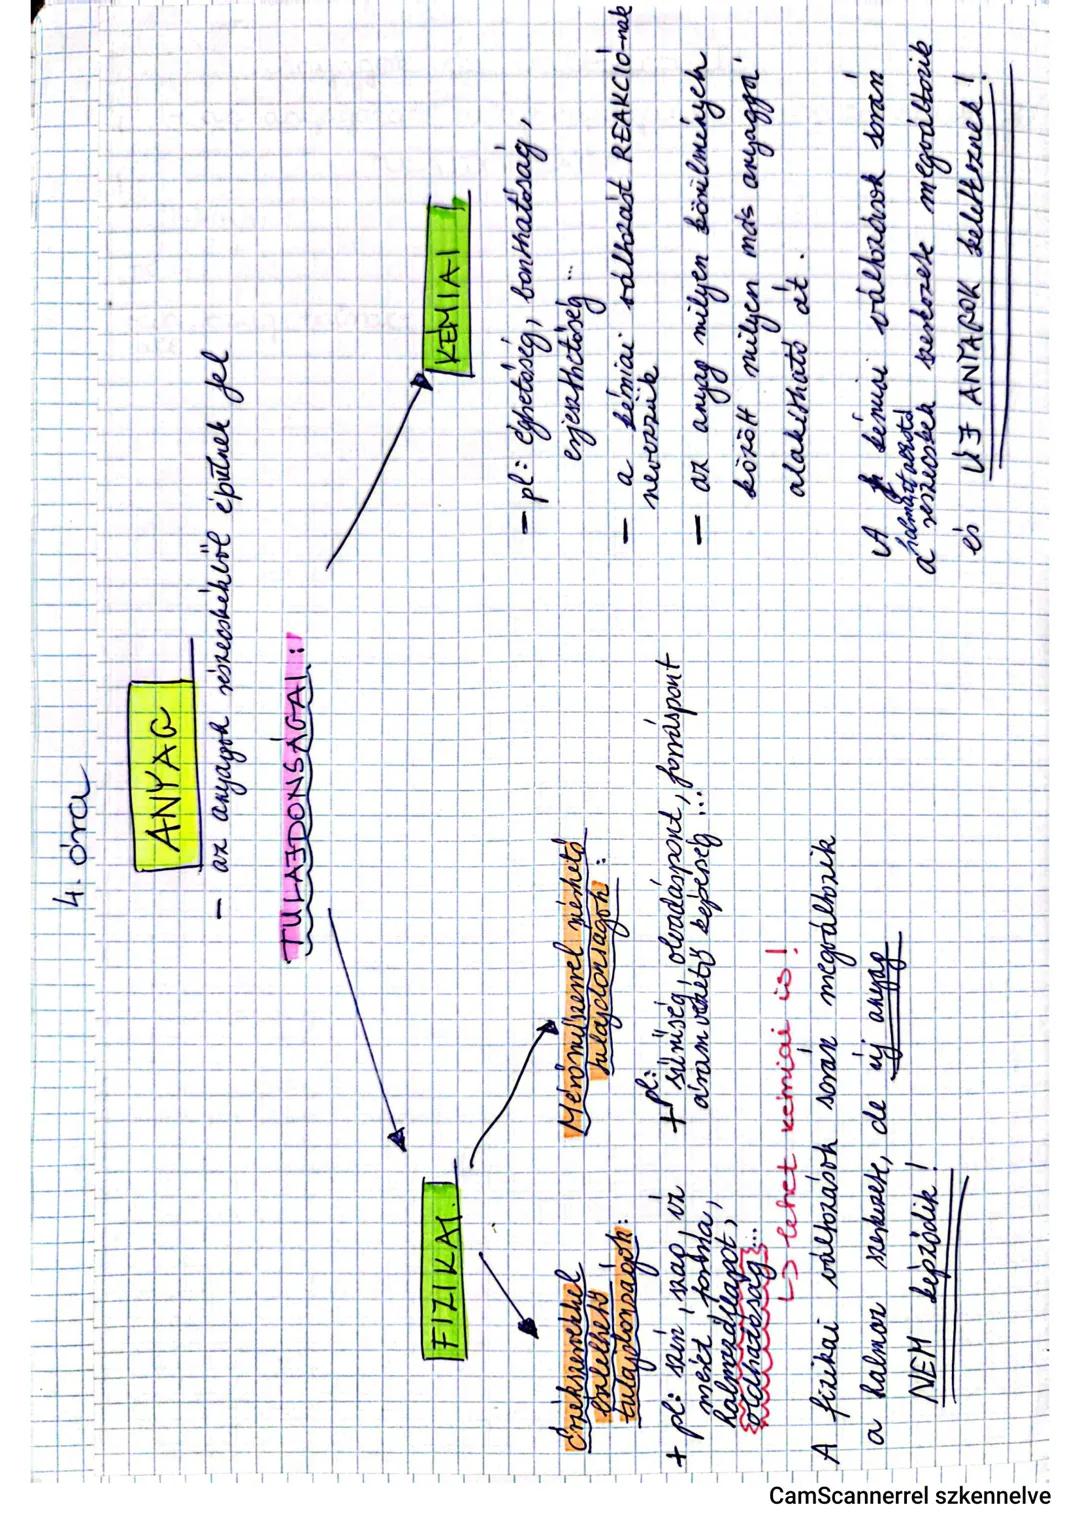 4. óra
ANYAG
- az anyagok részecskékből épülnek fel
TULAJDONSÁGAI:
FIZIKAI
Érzékszervekkel
észlelhető
tulajdonságok:
+ pl: szín, szag, íz
méret, forma,
halmazállapot,
oldhatóság...
↳ lehet kémiai is!
Mérőműszerrel mérhető
tulajdonságok:
+ pl:
sűrűség, olvadáspont, forráspont
áramvezető képesség...
A fizikai változások során megváltozik
a halmaz szerkezete, de új anyag
NEM képződik!
KÉMIAI
- pl: éghetőség, bonthatóság,
erjeszthetőség...
- a kémiai változást REAKCIÓ-nak
nevezzük
- az anyag milyen körülmények
között milyen más anyaggá
alakítható át.
A kémiai változások során
a részecskék szerkezete megváltozik
és ÚJ ANYAGOK keletkeznek!
CamScannerrel szkennelve